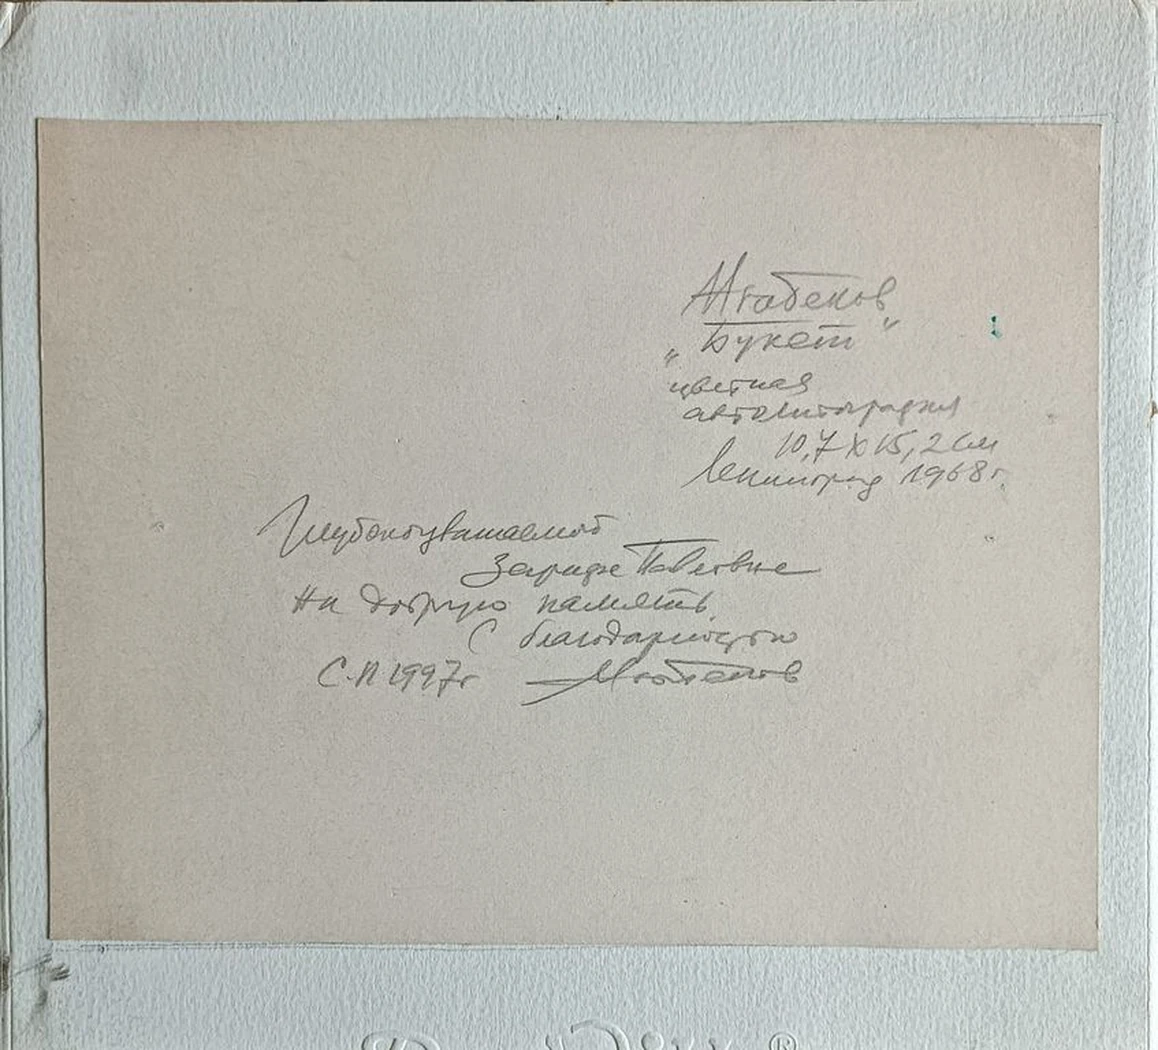 „Букет"
цветная
автолитография
10,7 х 15,2 см
Ленинград 1968 г.
Глубокоуважаемой
Зарифе Павловне
На добрую память
С благодарностью
С.П 1997г
®